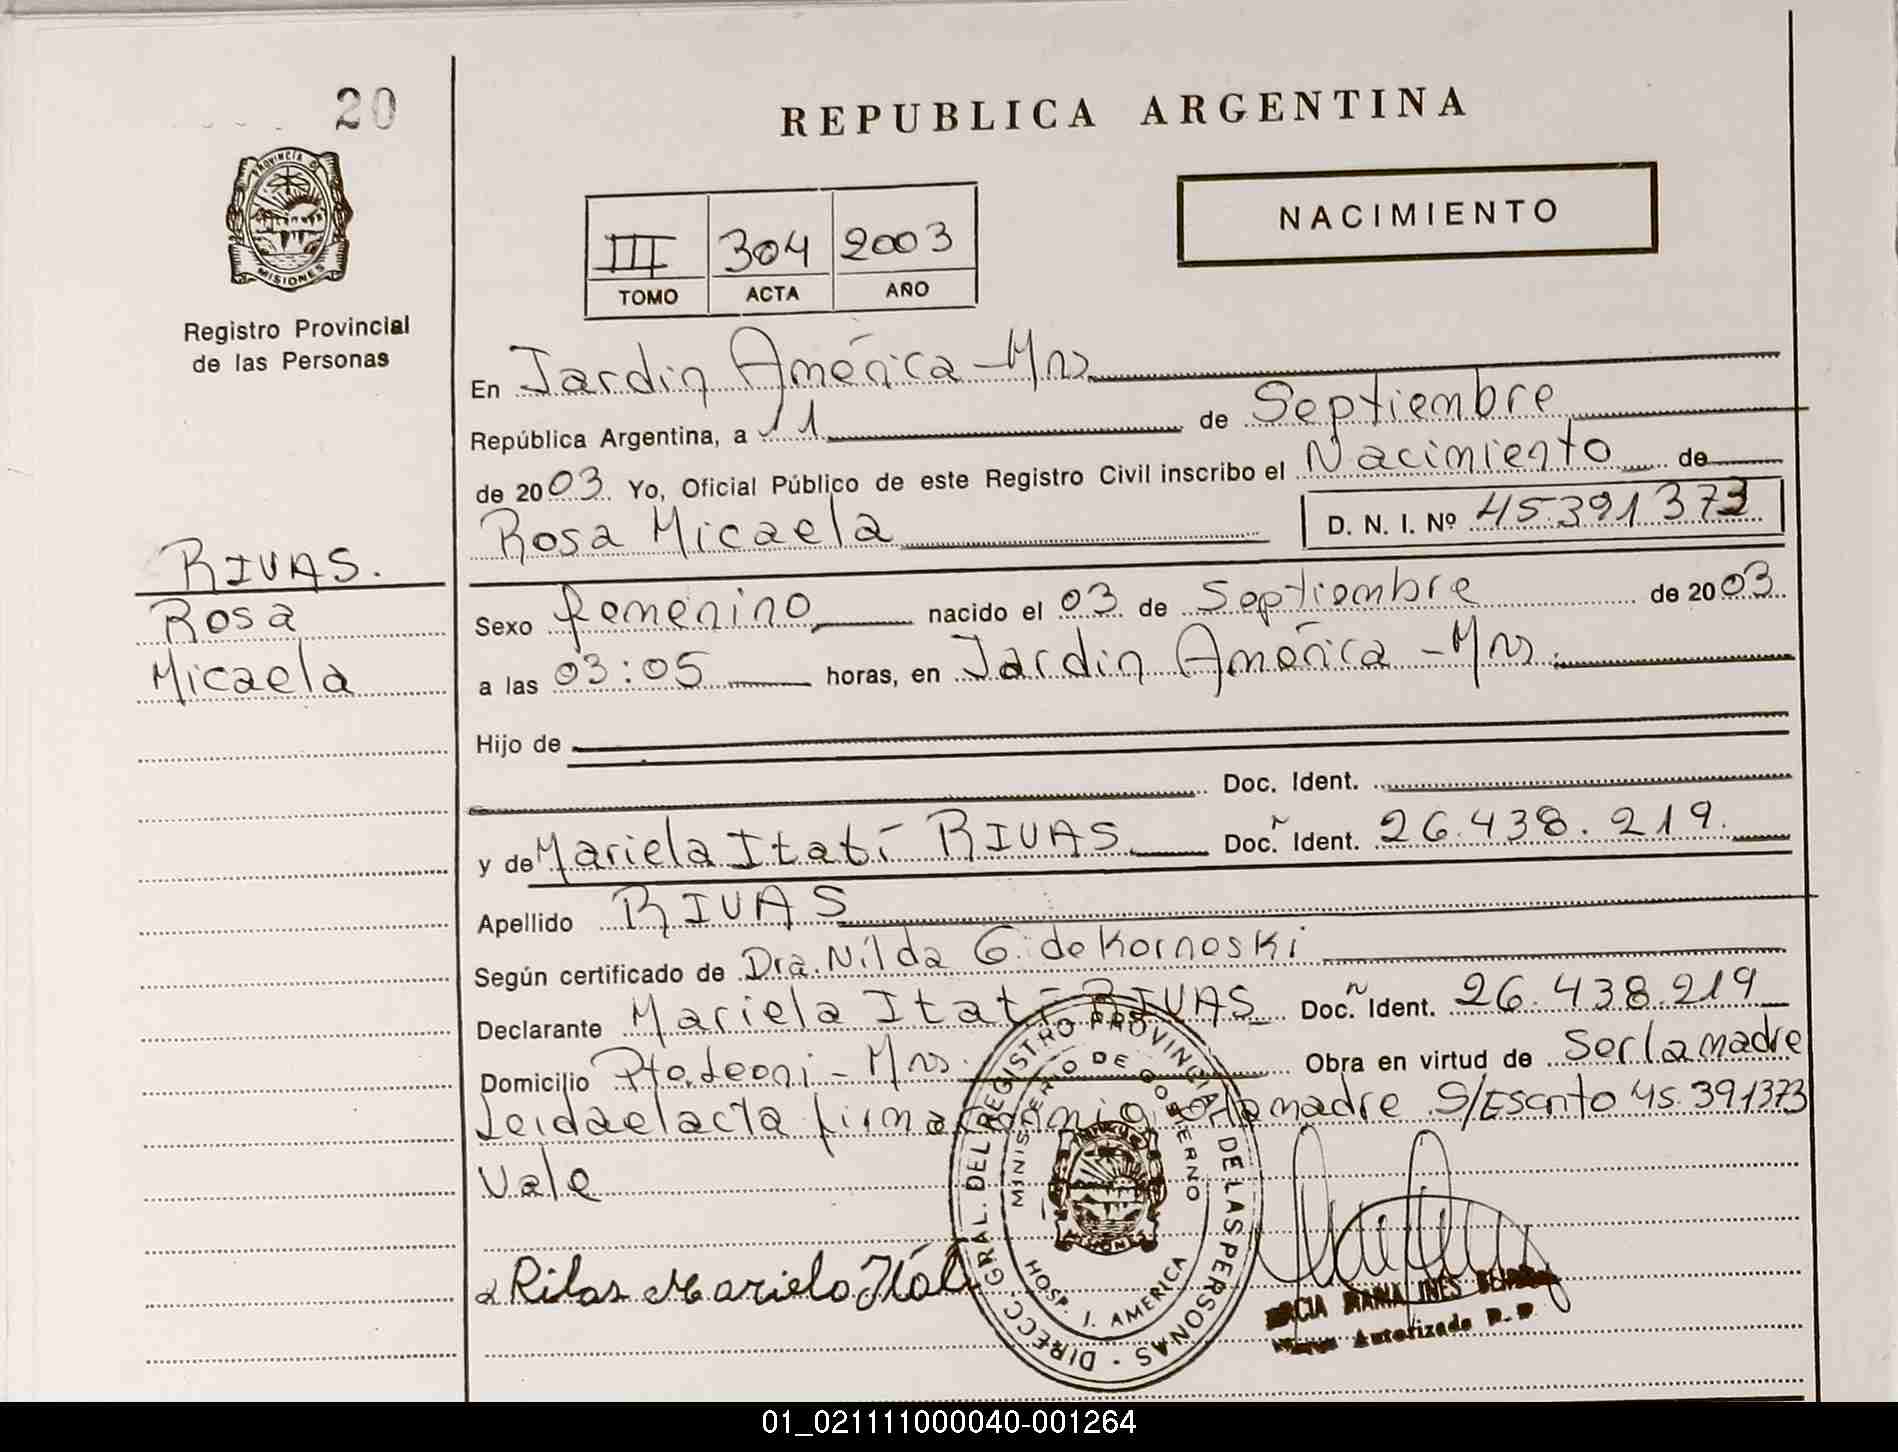 20
PROVINCIA D
MISIONES
Registro Provincial
de las Personas
RIVAS.
Rosa
Micaela
REPUBLICA ARGENTINA
NACIMIENTO
III 304 2003
TOMO ACTA AÑO
En Jardin América - Mns
República Argentina, a 11 de Septiembre
de 2003 Yo, Oficial Público de este Registro Civil inscribo el Nacimiento de
Rosa Micaela D. N. I. Nº 45.391.373
Sexo femenino nacido el 03 de Septiembre de 2003
a las 03:05 horas, en Jardin América - Mns.
Hijo de
Doc. Ident.
y de Mariela Itatí RIVAS Doc. Ident. 26.438.219.
Apellido RIVAS
Según certificado de Dra. Nilda G. de Korneski
Declarante Mariela Itatí RIVAS Doc. Ident. 26.438.219
Domicilio Pto. Leoni - Mns. Obra en virtud de Ser la madre
Leida el acta firma conmigo la madre S/Escrito 45.391373
Vale
Ribas Mariela Itati
DIRECC. GRAL. DEL REGISTRO PROVINCIAL DE LAS PERSONAS
MINISTERIO DE GOBIERNO
HOSP. J. AMERICA
MISIONES
MARIA INES
Autorizada R. P.
01_021111000040-001264